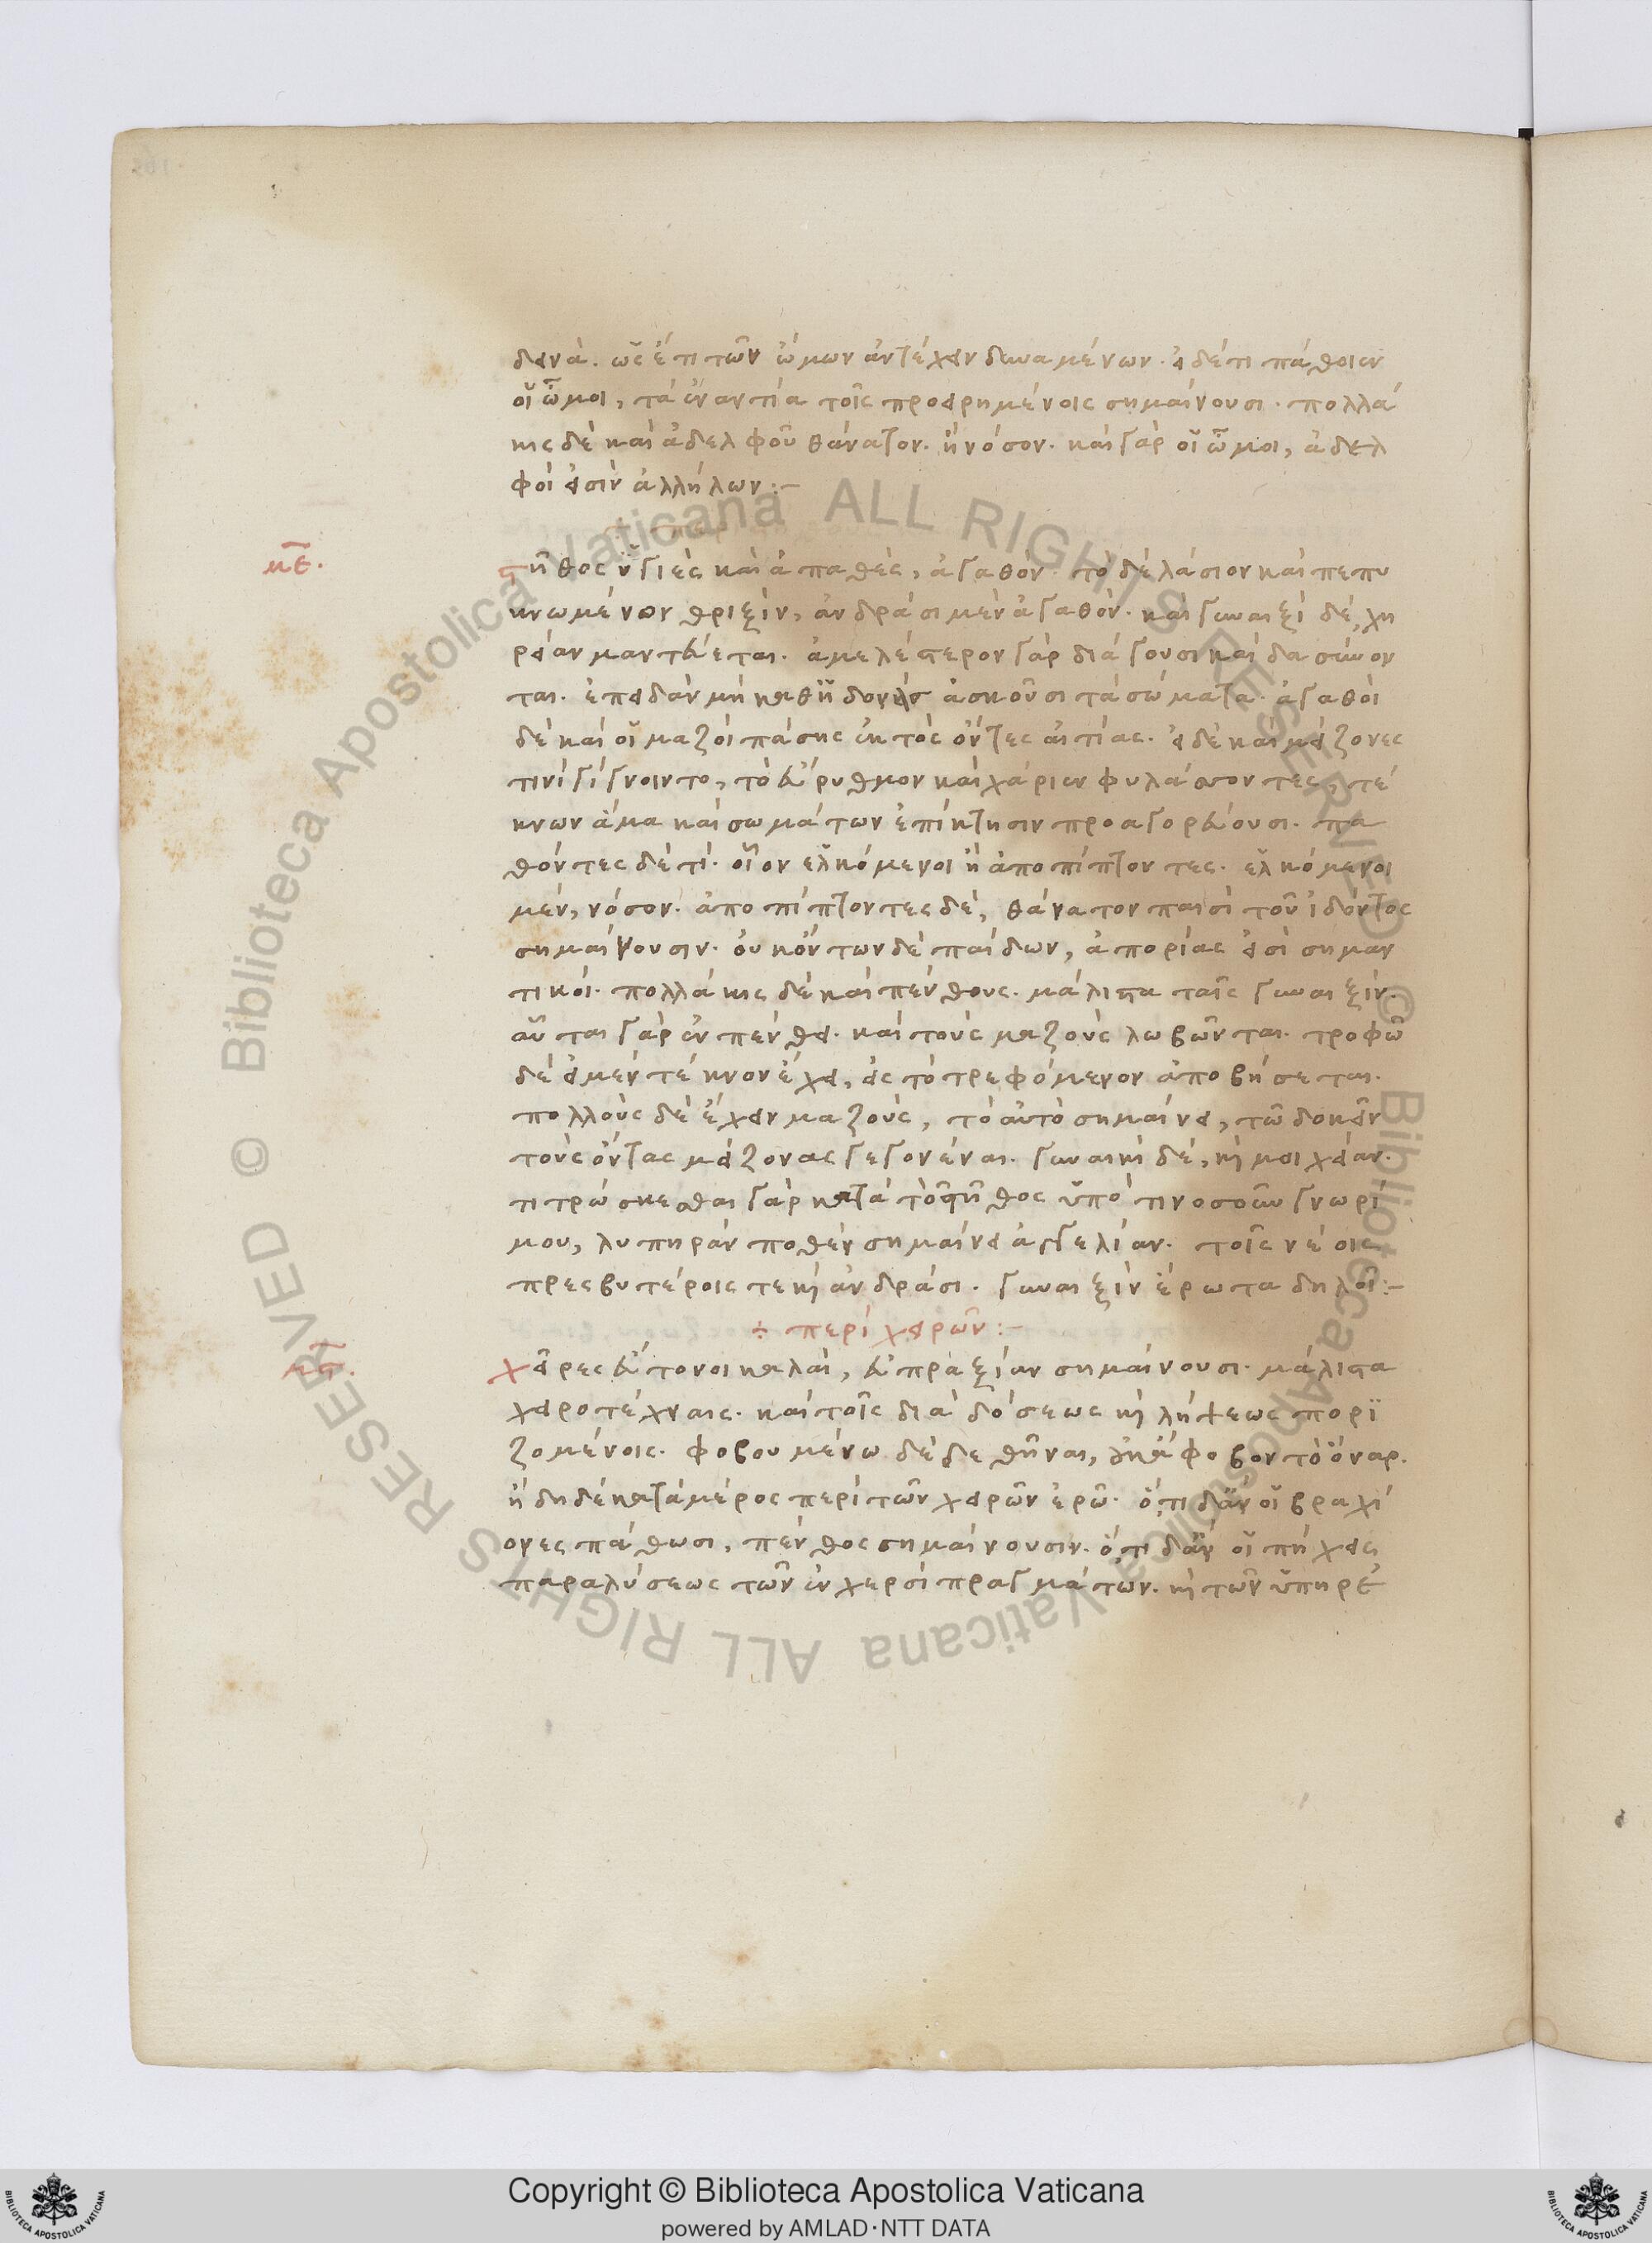 δεινὰ. ὡς ἔτι τῶν ὤμων ἀντέχειν δυναμένων. εἰ δέ τι πάθοιεν
οἱ ὦμοι, τὰ ἐναντία τοῖς προειρημένοις σημαίνουσι. πολλά
κις δὲ καὶ ἀδελφοῦ θάνατον. ἢ νόσον. καὶ γὰρ οἱ ὦμοι, ἀδελ
φοί εἰσιν ἀλλήλων:-
με.
στῆθος ὑγιὲς καὶ ἀπαθὲς, ἀγαθόν. τὸ δὲ λάσιον καὶ πεπυ
κνωμένον θριξὶν, ἀνδράσι μὲν ἀγαθόν. καὶ γυναιξὶ δὲ, χη
ρείαν μαντεύεται. ἀμελέστερον γὰρ διάγουσι καὶ δασύνον
ται. ἐπειδὰν μὴ καθ' ἡδονὰς ἀσκοῦσι τὰ σώματα. ἀγαθοὶ
δὲ καὶ οἱ μαζοὶ πάσης ἐκτὸς ὄντες αἰτίας. εἰ δὲ καὶ μείζονες
τινὶ γίγνοιντο, τὸ εὔρυθμον καὶ χάριεν φυλάσσοντες, τέ
κνων ἅμα καὶ σωμάτων ἐπίκτησιν προαγορεύουσι. πα
θόντες δέ τι. οἷον ἑλκόμενοι ἢ ἀποπίπτοντες. ἑλκόμενοι
μὲν, νόσον. ἀποπίπτοντες δὲ, θάνατον παισὶ τοῦ ἰδόντος
σημαίνουσιν. οὐκ ὄντων δὲ παίδων, ἀπορίας εἰσὶ σημαν
τικοί. πολλάκις δὲ καὶ πένθους. μάλιστα ταῖς γυναιξίν.
αὗται γὰρ ἐν πένθει. καὶ τοὺς μαζοὺς λωβῶνται. τροφῶ
δὲ εἰ μὲν τέκνον ἔχει, εἰς τὸ τρεφόμενον ἀποβήσεται.
πολλοὺς δὲ ἔχειν μαζοὺς, τὸ αὐτὸ σημαίνει, τῶ δοκεῖν
τοὺς ὄντας μείζονας γεγονέναι. γυναικὶ δὲ, καὶ μοιχείαν.
τιτρώσκεσθαι γὰρ κατὰ τὸ στῆθος ὑπό τινος οὖν γνωρί
μου, λυπηρὰν ποθὲν σημαίνει ἀγγελίαν. τοῖς νέοις
πρεσβυτέροις τε καὶ ἀνδράσι. γυναιξὶν ἔρωτα δηλοῖ:-
÷ περὶ χειρῶν:-
μϛ.
χεῖρες εὔτονοι καλαὶ, εὐπραξίαν σημαίνουσι. μάλιστα
χειροτέχναις. καὶ τοῖς διὰ δόσεως καὶ λήψεως πορϊ
ζομένοις. φοβουμένω δὲ δεθῆναι, οὐκ ἄφοβον τὸ ὄναρ.
ἤδη δὲ κατὰ μέρος περὶ τῶν χειρῶν ἐρῶ. ὅ,τι δ' ἂν οἱ βραχί
ονες πάθωσι, πένθος σημαίνουσιν. ὅ,τι δ' ἂν οἱ πήχεις
παραλύσεως τῶν ἐν χερσὶ πραγμάτων. καὶ τῶν ὑπηρε